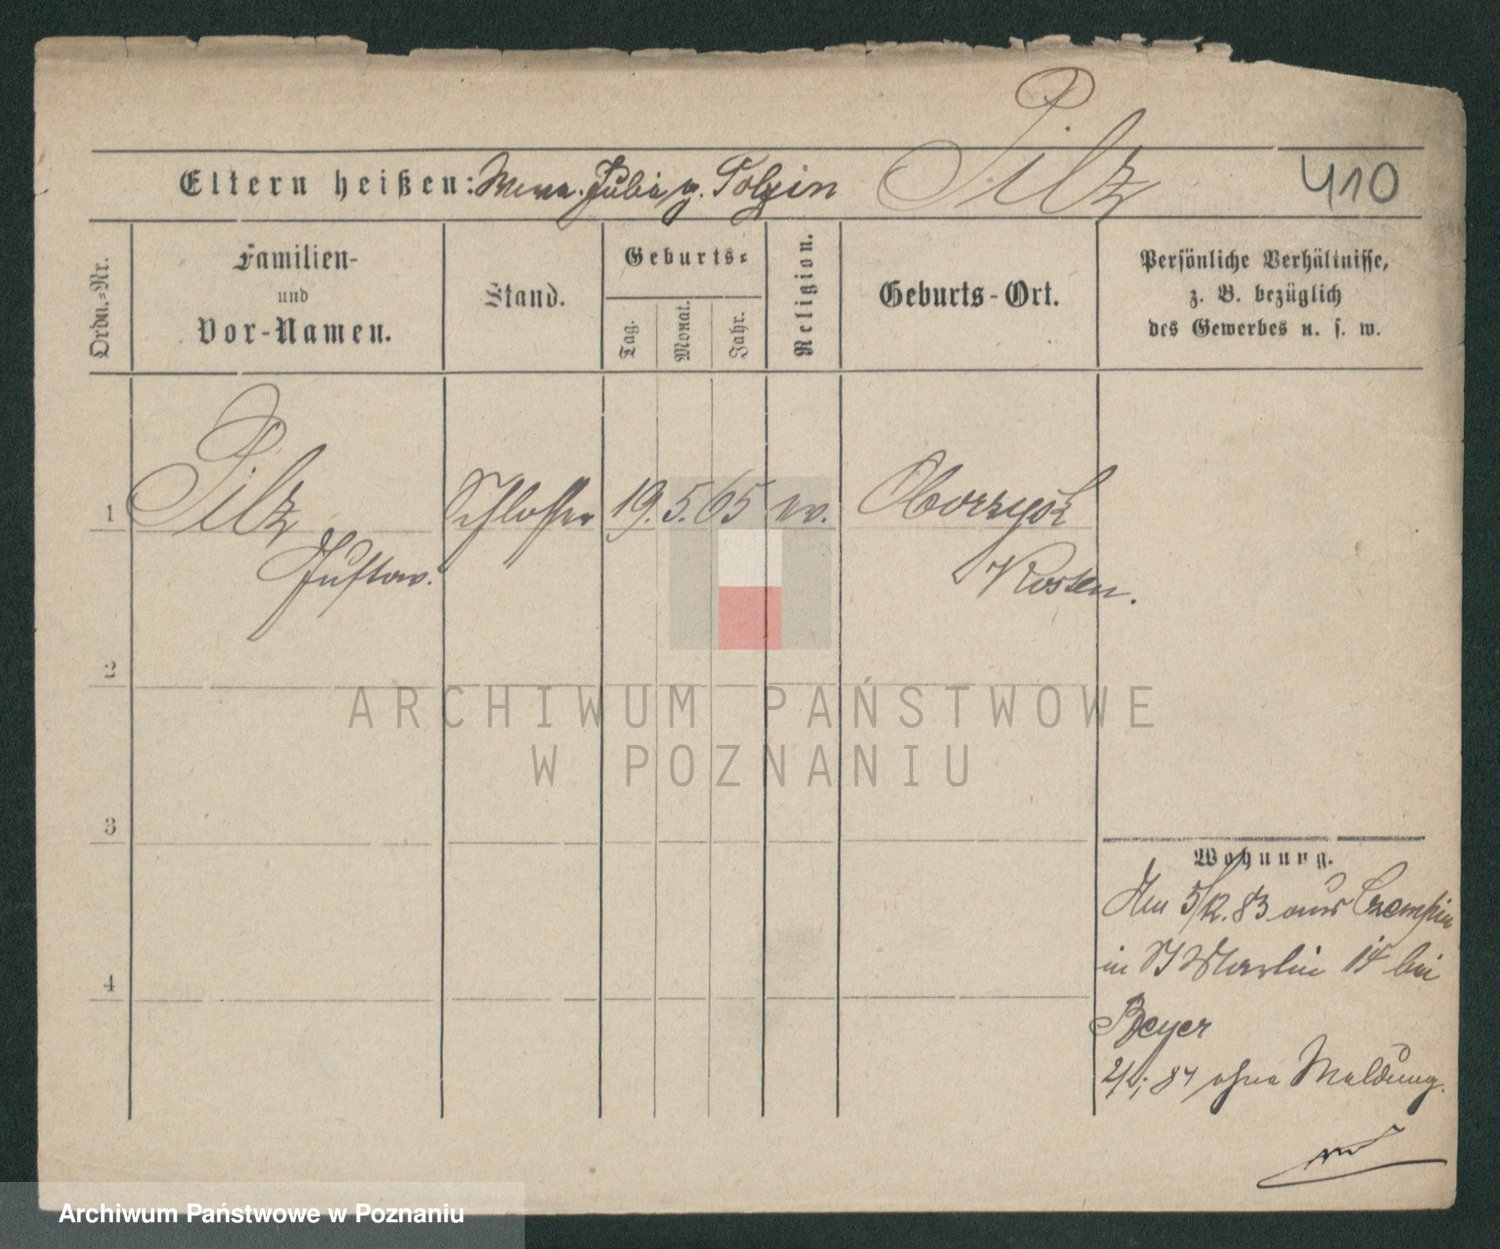 Pilz
410
Eltern heißen: Julia
Ordn.-Nr.
Familien-
und
Vor-Namen.
Stand.
Geburts-
Tag.
Monat.
Jahr.
Religion.
Geburts-Ort.
Persönliche Verhältnisse,
z. B. bezüglich
des Gewerbes u. s. w.
1 Pilz Schlosser 19. 5. 65 ev. Oborzysk
Gustav. Kosten.
2
3
4
Wohnung.
Am 5/12. 83 aus Czempin
in St Martin 14 bei
Beyer
ohne Meldung.
ARCHIWUM PAŃSTWOWE
W POZNANIU
Archiwum Państwowe w Poznaniu